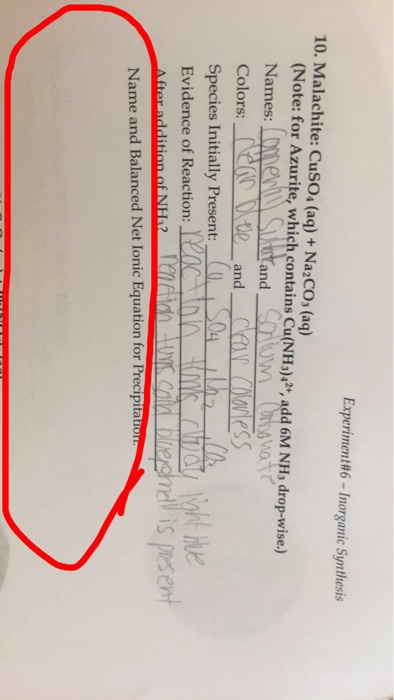 Experiment#6 – Inorganic Synthesis
10. Malachite: CuSO₄ (aq) + Na₂CO₃ (aq)
(Note: for Azurite, which contains Cu(NH₃)₄²⁺, add 6M NH₃ drop-wise.)
Names: and Sodium Carbonate
Colors: clear blue and clear colorless
Species Initially Present: Cu, SO4, Na2, CO3
Evidence of Reaction: reaction turns cloudy light blue
After addition of NH₃? reaction turns solid blue, smell is present
Name and Balanced Net Ionic Equation for Precipitation: